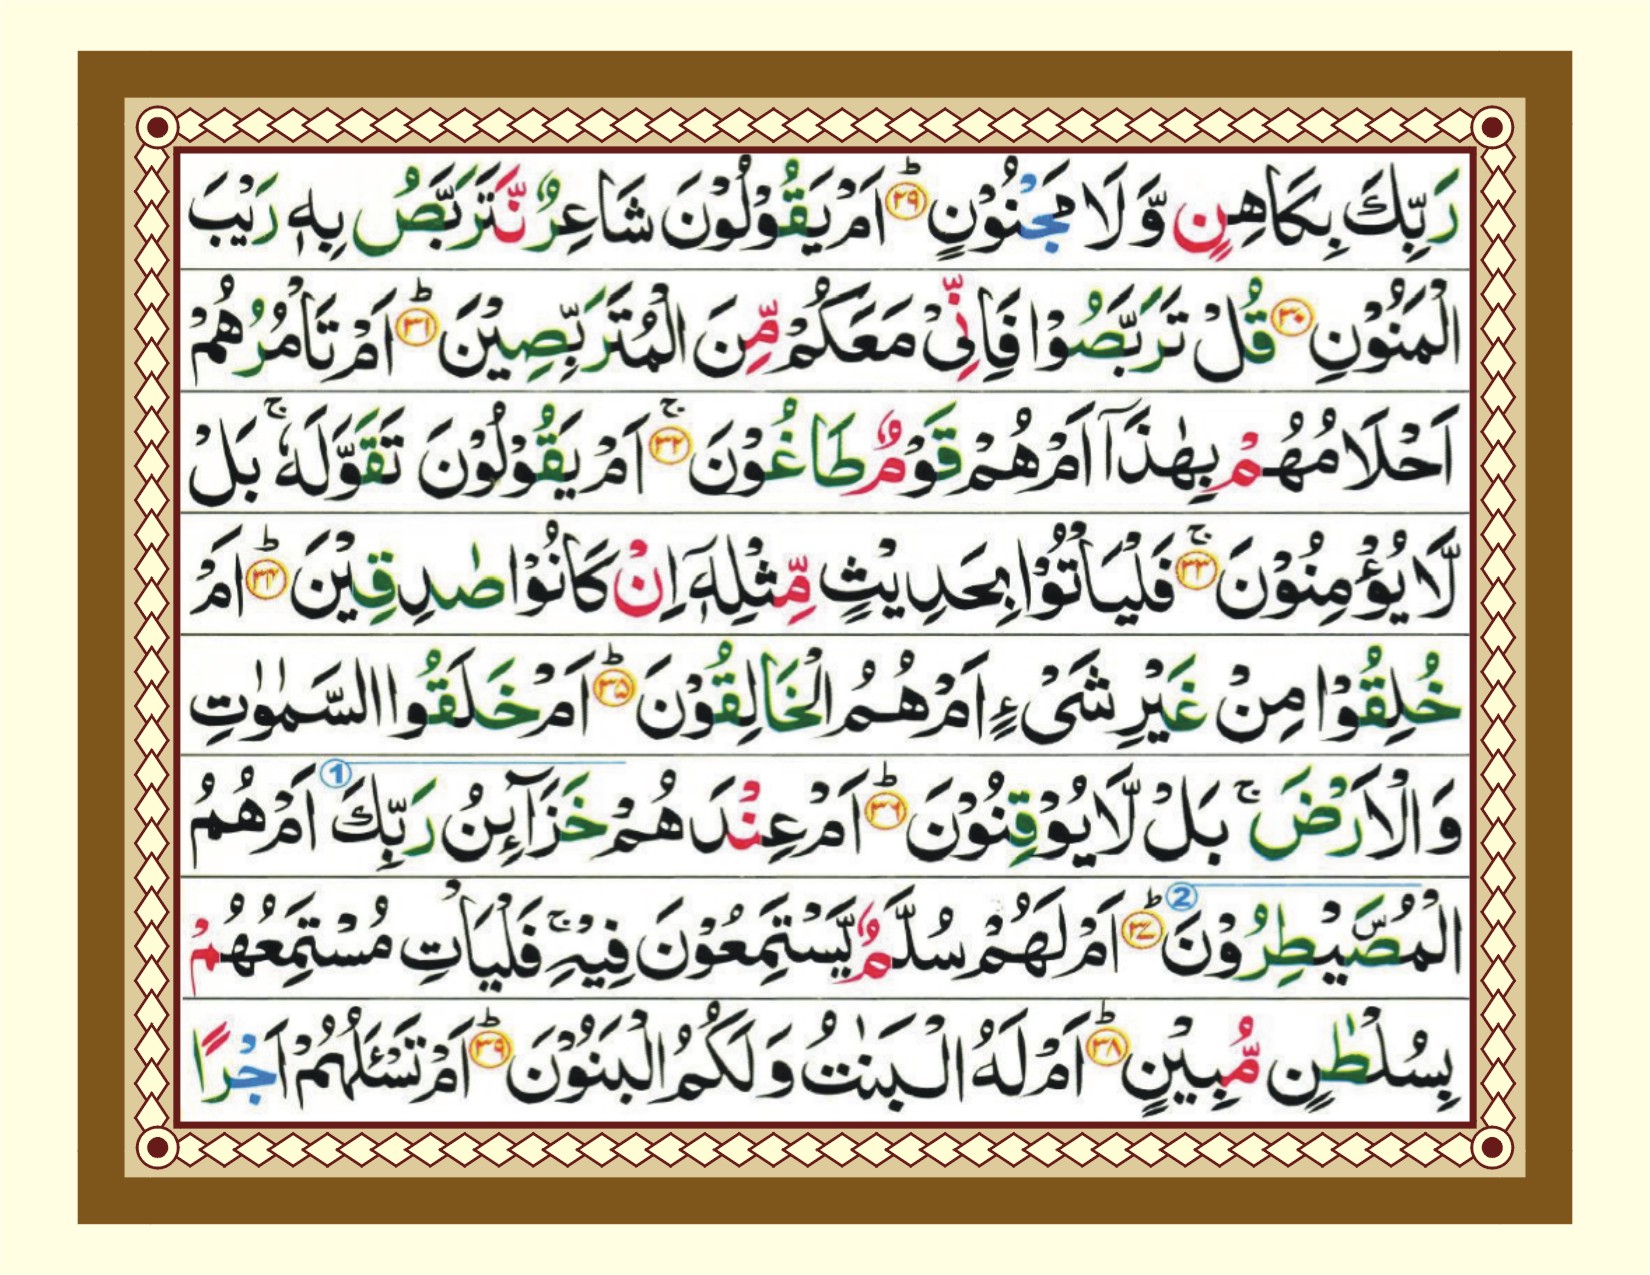 رَبِّكَ بِكَاهِنٍ وَّ لَا مَجْنُوْنٍ ؕ﴿۲۹﴾ اَمْ يَقُوْلُوْنَ شَاعِرٌ نَّتَرَبَّصُ بِهٖ رَيْبَ
الْمَنُوْنِ ﴿۳۰﴾ قُلْ تَرَبَّصُوْا فَاِنِّيْ مَعَكُمْ مِّنَ الْمُتَرَبِّصِيْنَ ؕ﴿۳۱﴾ اَمْ تَاْمُرُهُمْ
اَحْلَامُهُمْ بِهٰذَاۤ اَمْ هُمْ قَوْمٌ طَاغُوْنَ ۚ﴿۳۲﴾ اَمْ يَقُوْلُوْنَ تَقَوَّلَهٗ ۚ بَلْ
لَّا يُؤْمِنُوْنَ ۚ﴿۳۳﴾ فَلْيَاْتُوْا بِحَدِيْثٍ مِّثْلِهٖۤ اِنْ كَانُوْا صٰدِقِيْنَ ؕ﴿۳۴﴾ اَمْ
خُلِقُوْا مِنْ غَيْرِ شَيْءٍ اَمْ هُمُ الْخَالِقُوْنَ ؕ﴿۳۵﴾ اَمْ خَلَقُوا السَّمٰوٰتِ
وَ الْاَرْضَ ۚ بَلْ لَّا يُوْقِنُوْنَ ؕ﴿۳۶﴾ اَمْ عِنْدَهُمْ خَزَآئِنُ رَبِّكَ ① اَمْ هُمُ
الْمُصَۜيْطِرُوْنَ ② ؕ﴿۳۷﴾ اَمْ لَهُمْ سُلَّمٌ يَّسْتَمِعُوْنَ فِيْهِ ۚ فَلْيَاْتِ مُسْتَمِعُهُمْ
بِسُلْطٰنٍ مُّبِيْنٍ ؕ﴿۳۸﴾ اَمْ لَهُ الْبَنٰتُ وَ لَكُمُ الْبَنُوْنَ ؕ﴿۳۹﴾ اَمْ تَسْـَٔلُهُمْ اَجْرًا